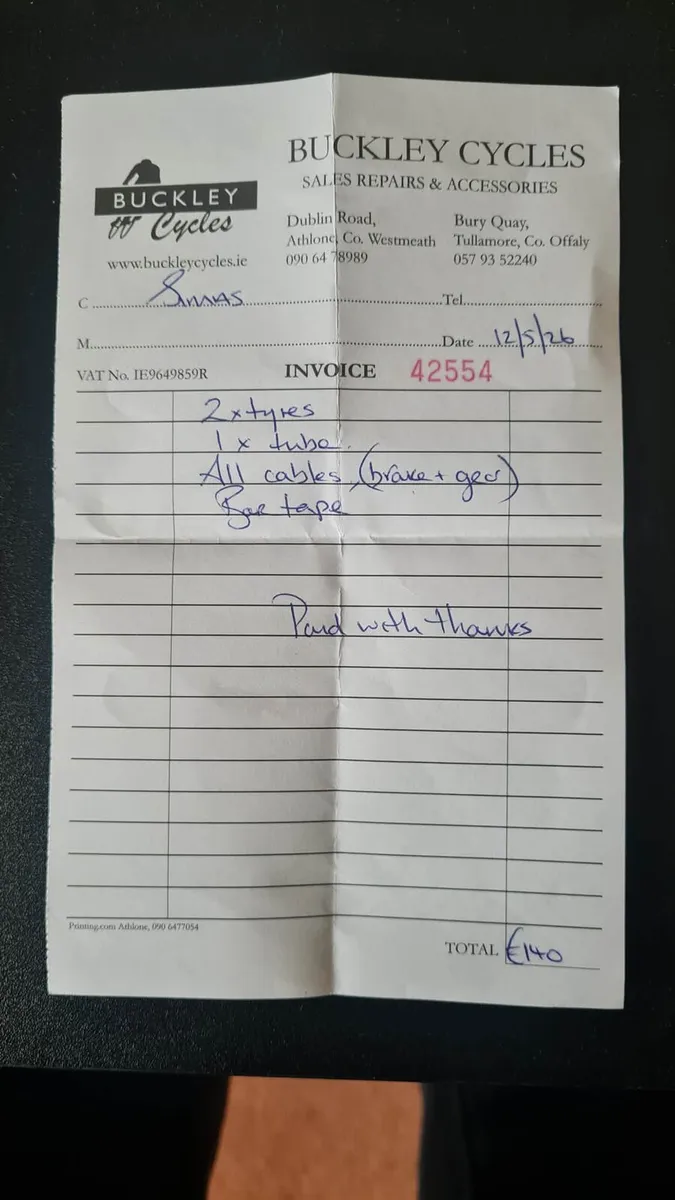 BUCKLEY
Cycles
www.buckleycycles.ie
BUCKLEY CYCLES
SALES REPAIRS & ACCESSORIES
Dublin Road,
Athlone, Co. Westmeath
090 64 78989
Bury Quay,
Tullamore, Co. Offaly
057 93 52240
C
Tel
M
Date 12/5/26
VAT No. IE9649859R INVOICE 42554
2 x tyres
1 x tube.
All cables (brake + gear)
Bar tape
Paid with thanks
Printing.com Athlone, 090 6477054
TOTAL €140